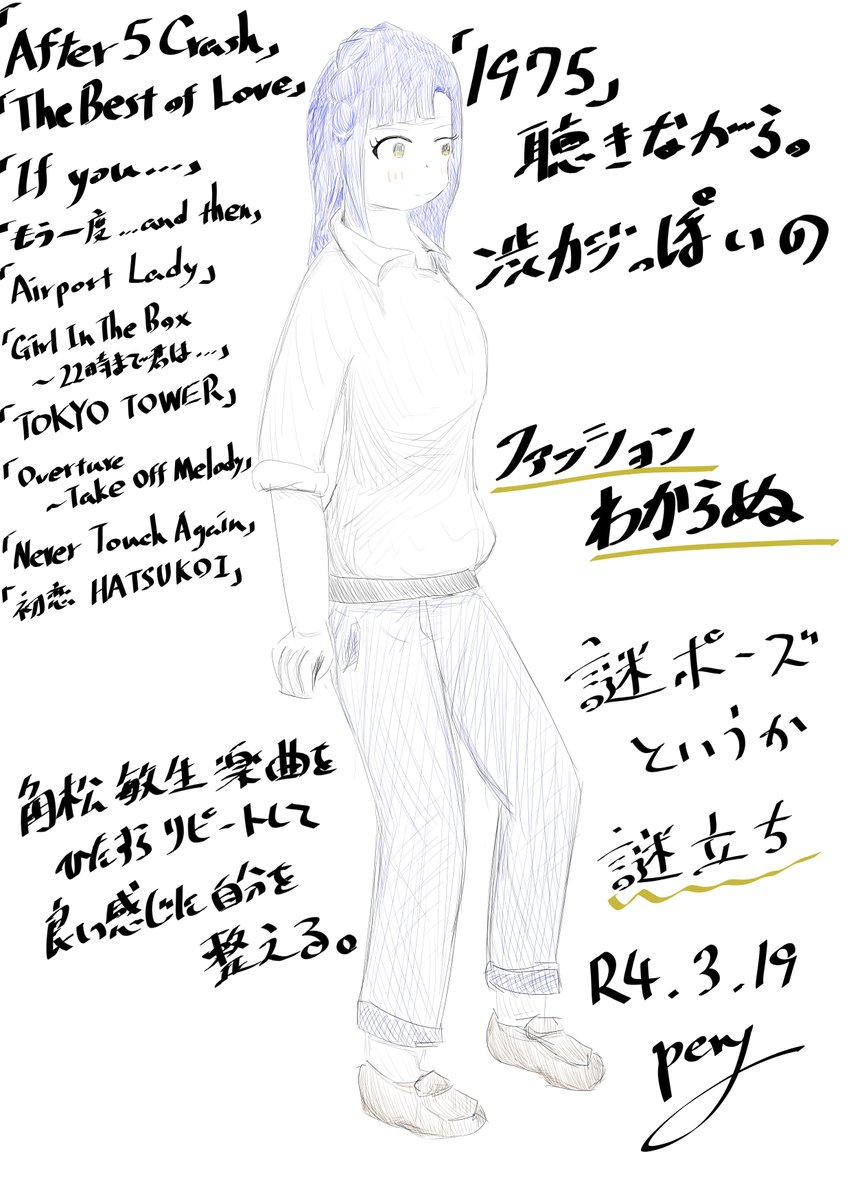 「After 5 Crash」
「The Best of Love」
「If you....」
「もう一度...and then」
「Airport Lady」
「Girl In The Box
～22時まで君は...」
「TOKYO TOWER」
「Overture
～Take Off Melody」
「Never Touch Again」
「初恋 HATSUKOI」
「1975」
聴きながら。
渋カジっぽいの
ファッション
わからぬ
謎ポーズ
というか
謎立ち
角松敏生楽曲を
ひたすらリピートして
良い感じに自分を
整える。
R4.3.19
pery